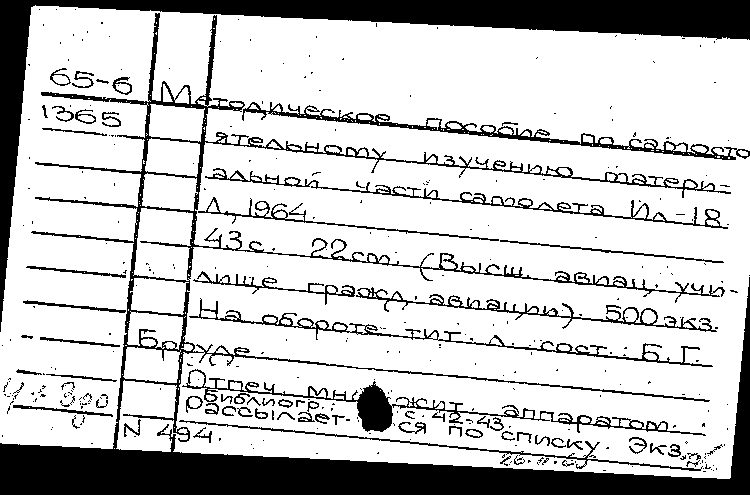 65-6 Методическое пособие по самосто
1365 ятельному изучению матери-
альной части самолета Ил-18.
Л., 1964.
43с. 22см. (Высш. авиац. учи-
лище гражд. авиации). 500экз.
На обороте тит. л. сост.: Б.Г.
Броуде.
Отпеч. множит. аппаратом.
Библиогр.: с. 42-43.
Рассылается по списку. Экз.
N 494.